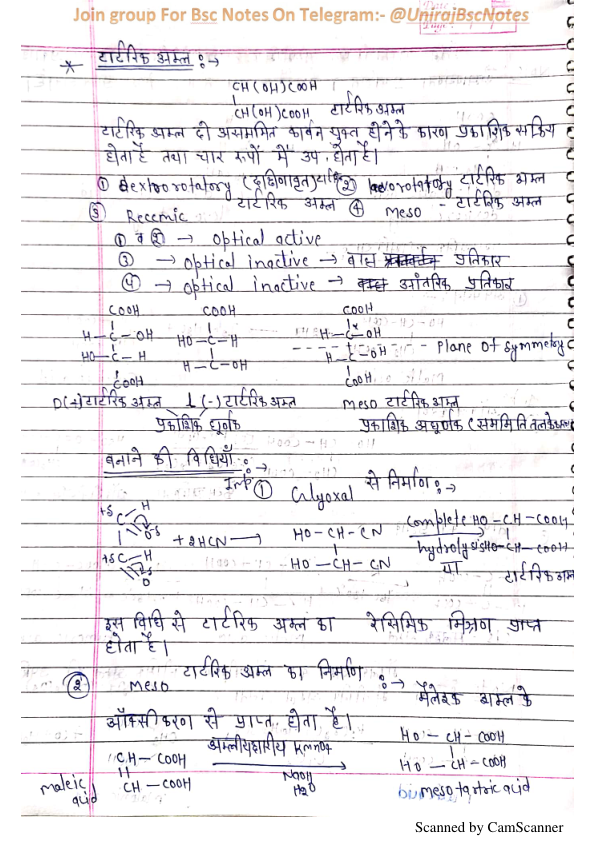 Join group For Bsc Notes On Telegram:- @UnirajBscNotes
* टार्टरिक अम्ल :→
CH(OH)COOH
|
CH(OH)COOH टार्टरिक अम्ल
टार्टरिक अम्ल दो असममित कार्बन युक्त होने के कारण प्रकाशिक सक्रिय
होता है तथा चार रूपों में उप. होता है।
① dextrorotatory (दक्षिणावृत) ② levorotatory टार्टरिक अम्ल
टार्टरिक अम्ल
③ Recemic ④ meso - टार्टरिक अम्ल
① व ② → optical active
③ → optical inactive → बाह्य प्रतिकार
④ → optical inactive → आंतरिक प्रतिकार
COOH COOH COOH
H-C-OH HO-C-H H-C*-OH
HO-C-H H-C-OH H-C-OH - Plane of symmetry
COOH COOH
D(+)टार्टरिक अम्ल L(-)टार्टरिक अम्ल meso टार्टरिक अम्ल
प्रकाशिक घूर्णक प्रकाशिक अघूर्णक (सममिति तल के
बनाने की विधियाँ :→
Imp ① Glyoxal से निर्माण :→
+δC-H O-δ
+δC-H O-δ
+ 2HCN → HO-CH-CN complete HO-CH-COOH
HO-CH-CN hydrolysis HO-CH-COOH
या टार्टरिक अम्ल
इस विधि से टार्टरिक अम्ल का रेसिमिक मिश्रण प्राप्त
होता है।
② meso टार्टरिक अम्ल का निर्माण :→ मैलेइक अम्ल के
ऑक्सीकरण से प्राप्त होता है।
CH-COOH KMnO4 HO-CH-COOH
||
CH-COOH NaOH H2O HO-CH-COOH
maleic acid meso tartric acid
Scanned by CamScanner